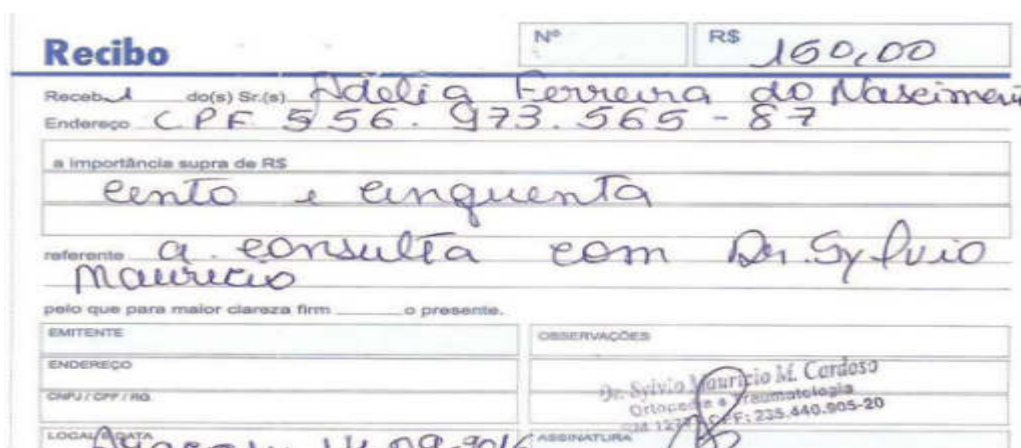 Recibo
Nº
R$ 150,00
Receb i do(s) Sr.(s) Adélia Ferreira do Nascimen
Endereço CPF 556.973.565-87
a importância supra de R$
cento e cinquenta
referente a consulta com Dr. Sylvio
Mauricio
pelo que para maior clareza firm o presente.
EMITENTE
OBSERVAÇÕES
ENDEREÇO
CNPJ / CPF / RG
Dr. Sylvio Mauricio M. Cardoso
Ortopedia e Traumatologia
CPF: 235.440.905-20
LOCAL E DATA
ASSINATURA